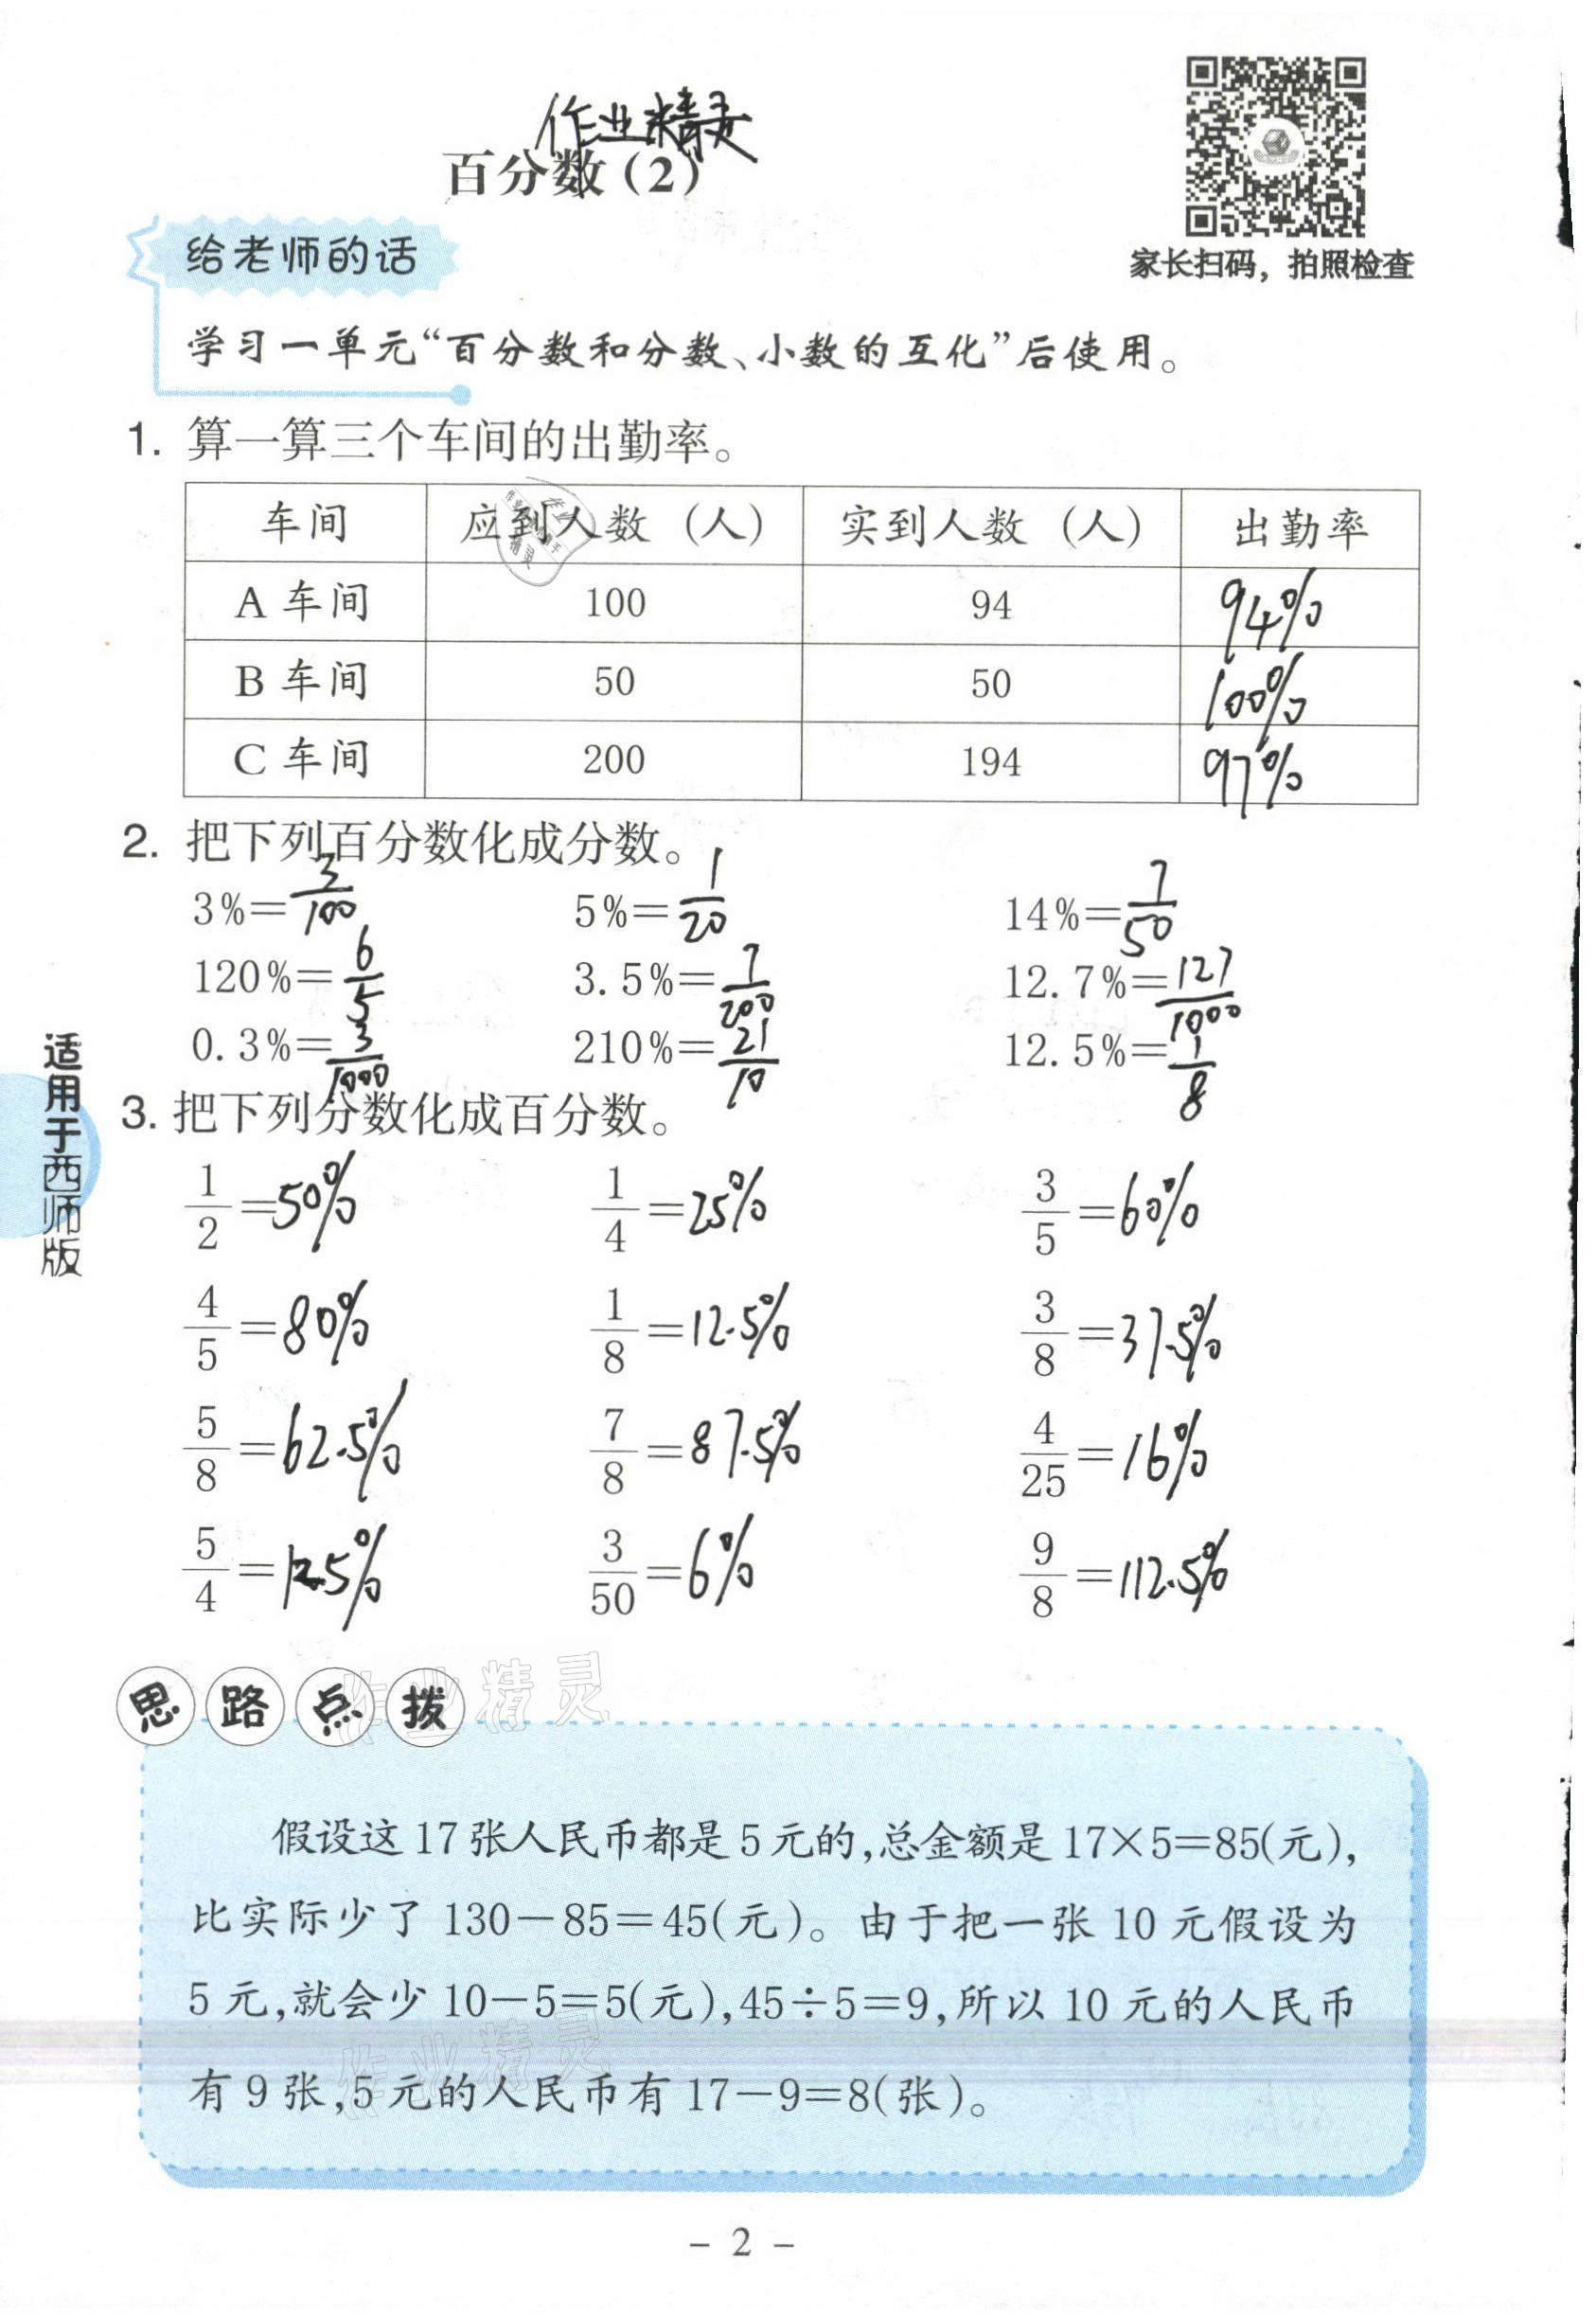 作业精灵
百分数（2）
家长扫码，拍照检查
给老师的话
学习一单元“百分数和分数、小数的互化”后使用。
1. 算一算三个车间的出勤率。
车间 应到人数（人） 实到人数（人） 出勤率
A 车间 100 94 94%
B 车间 50 50 100%
C 车间 200 194 97%
2. 把下列百分数化成分数。
3%=3/100 5%=1/20 14%=7/50
120%=6/5 3.5%=7/200 12.7%=127/1000
0.3%=3/1000 210%=21/10 12.5%=1/8
3. 把下列分数化成百分数。
1/2=50% 1/4=25% 3/5=60%
4/5=80% 1/8=12.5% 3/8=37.5%
5/8=62.5% 7/8=87.5% 4/25=16%
5/4=125% 3/50=6% 9/8=112.5%
适用于西师版
思路点拨
作业精灵
假设这 17 张人民币都是 5 元的,总金额是 17×5=85(元),
比实际少了 130-85=45(元)。由于把一张 10 元假设为
5 元,就会少 10-5=5(元),45÷5=9,所以 10 元的人民币
作业精灵
有 9 张,5 元的人民币有 17-9=8(张)。
- 2 -